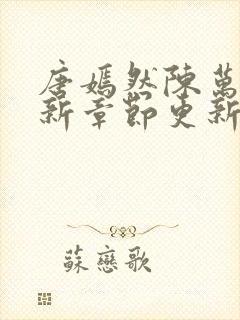 唐嫣然陳萬
新章節更新
蘇戀歌